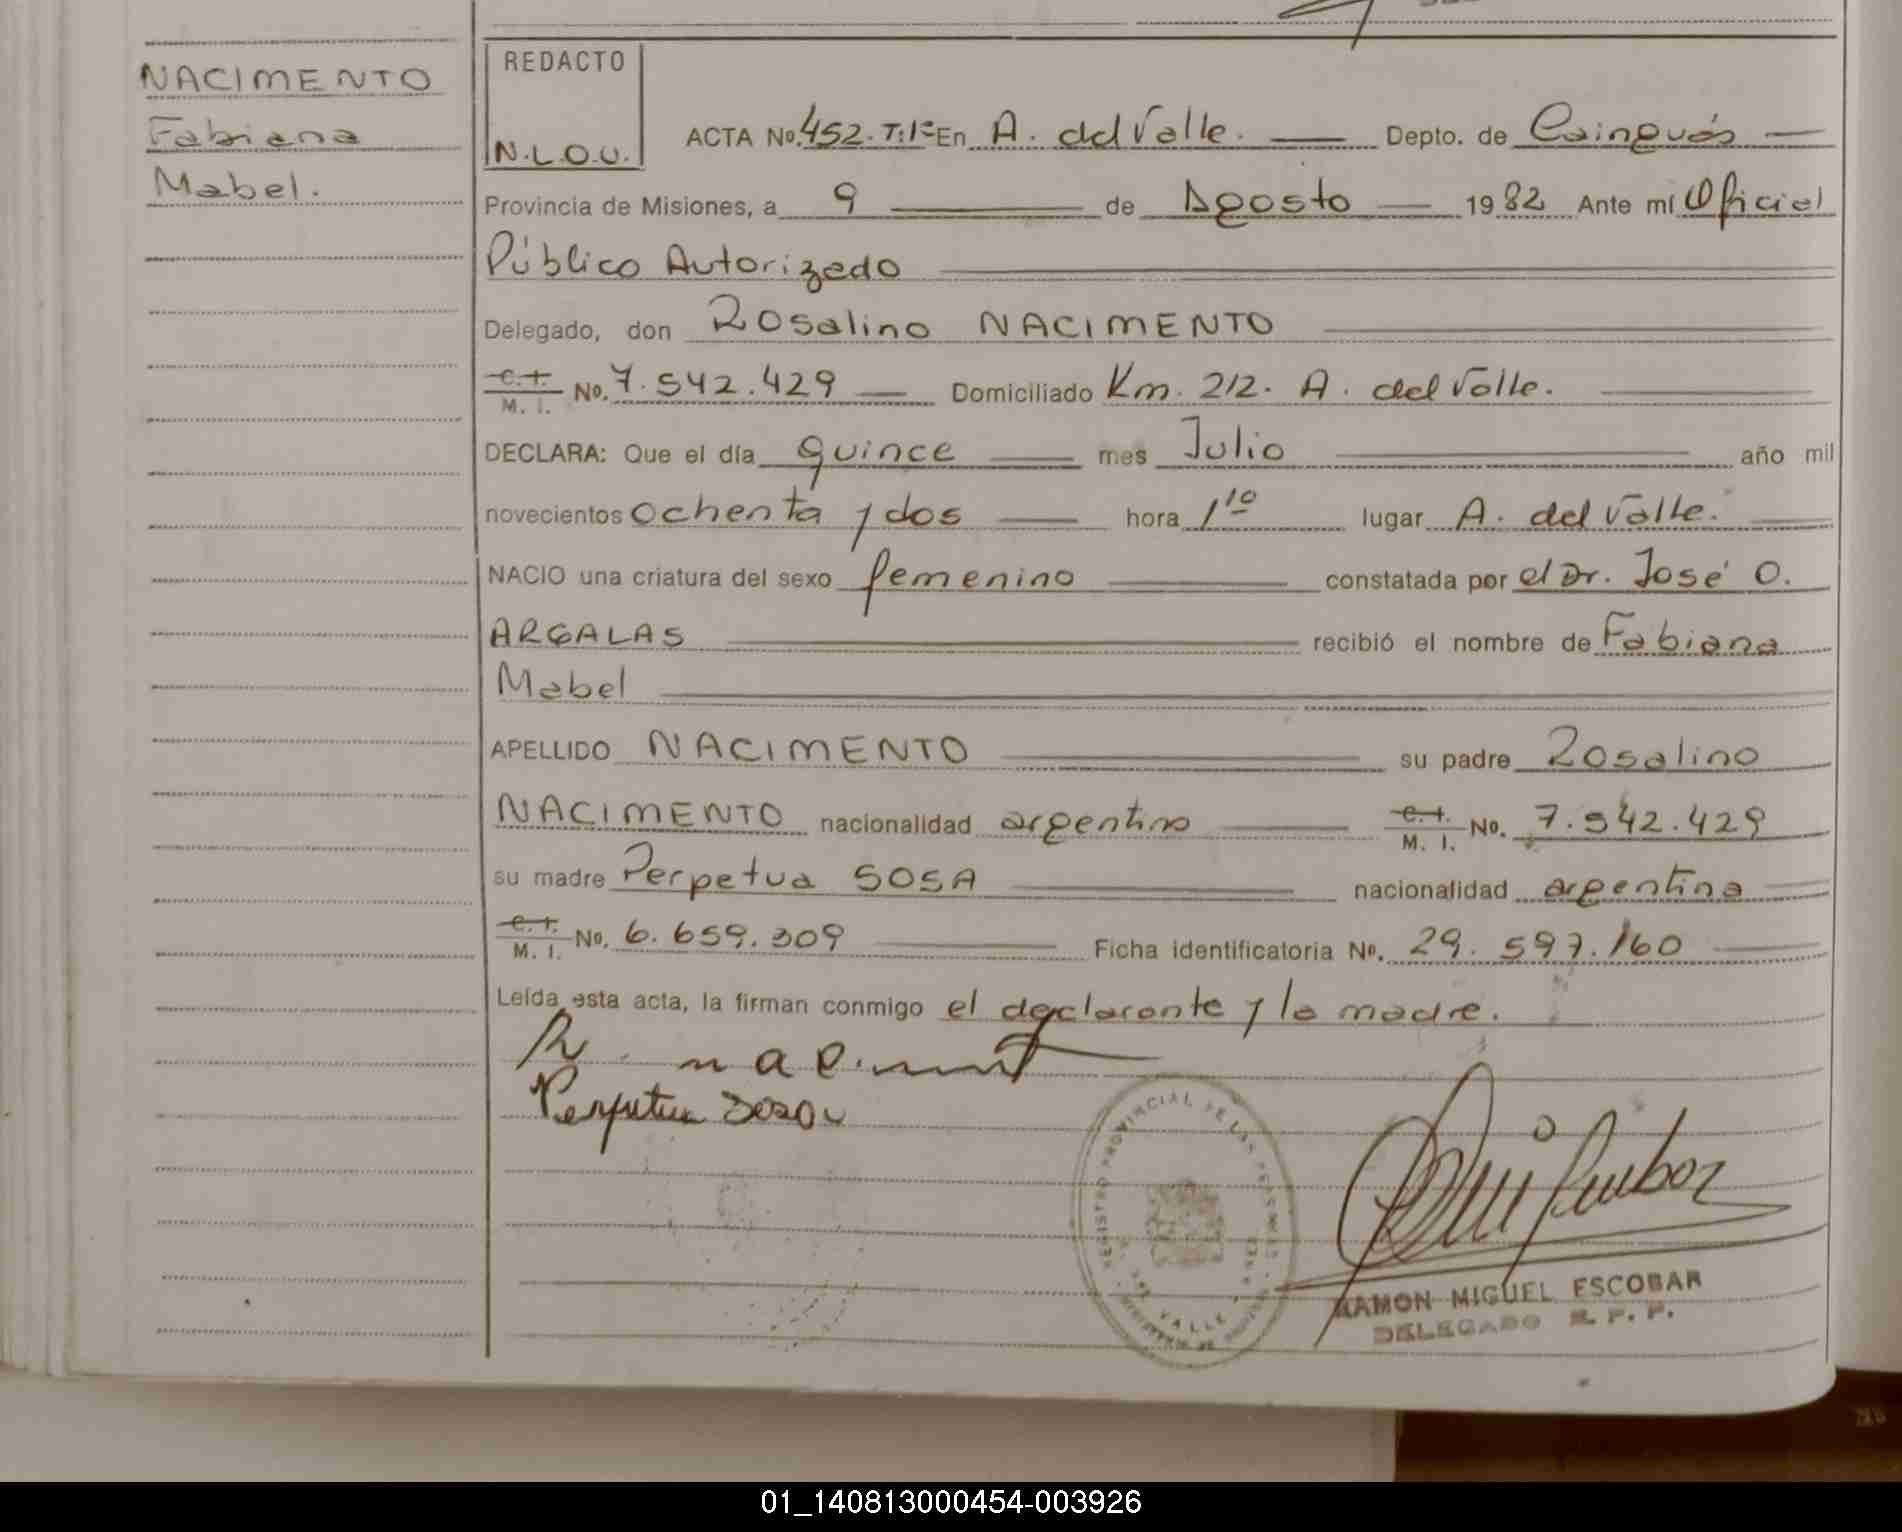 NACIMENTO
Fabiana
Mabel.
REDACTO
N.L.O.U.
ACTA No. 452. T:1º En A. del Valle. Depto. de Cainguás
Provincia de Misiones, a 9 de Agosto 1982 Ante mí Oficial
Público Autorizado
Delegado, don Rosalino NACIMENTO
C.I. M. I. No. 7.542.429 Domiciliado Km. 212. A. del Valle.
DECLARA: Que el día quince mes Julio año mil
novecientos ochenta y dos hora 1¹⁰ lugar A. del Valle.
NACIO una criatura del sexo femenino constatada por el Dr. José O.
ARGALAS recibió el nombre de Fabiana
Mabel
APELLIDO NACIMENTO su padre Rosalino
NACIMENTO nacionalidad argentino C.I. M. I. No. 7.542.429
su madre Perpetua SOSA nacionalidad argentina
C.I. M. I. No. 6.659.309 Ficha identificatoria No. 29.597.160
Leída esta acta, la firman conmigo el declarante y la madre.
Perpetua Sosa
REGISTRO PROVINCIAL DE LAS PERSONAS
DEL VALLE
RAMON MIGUEL ESCOBAR
DELEGADO R. P. P.
01_140813000454-003926